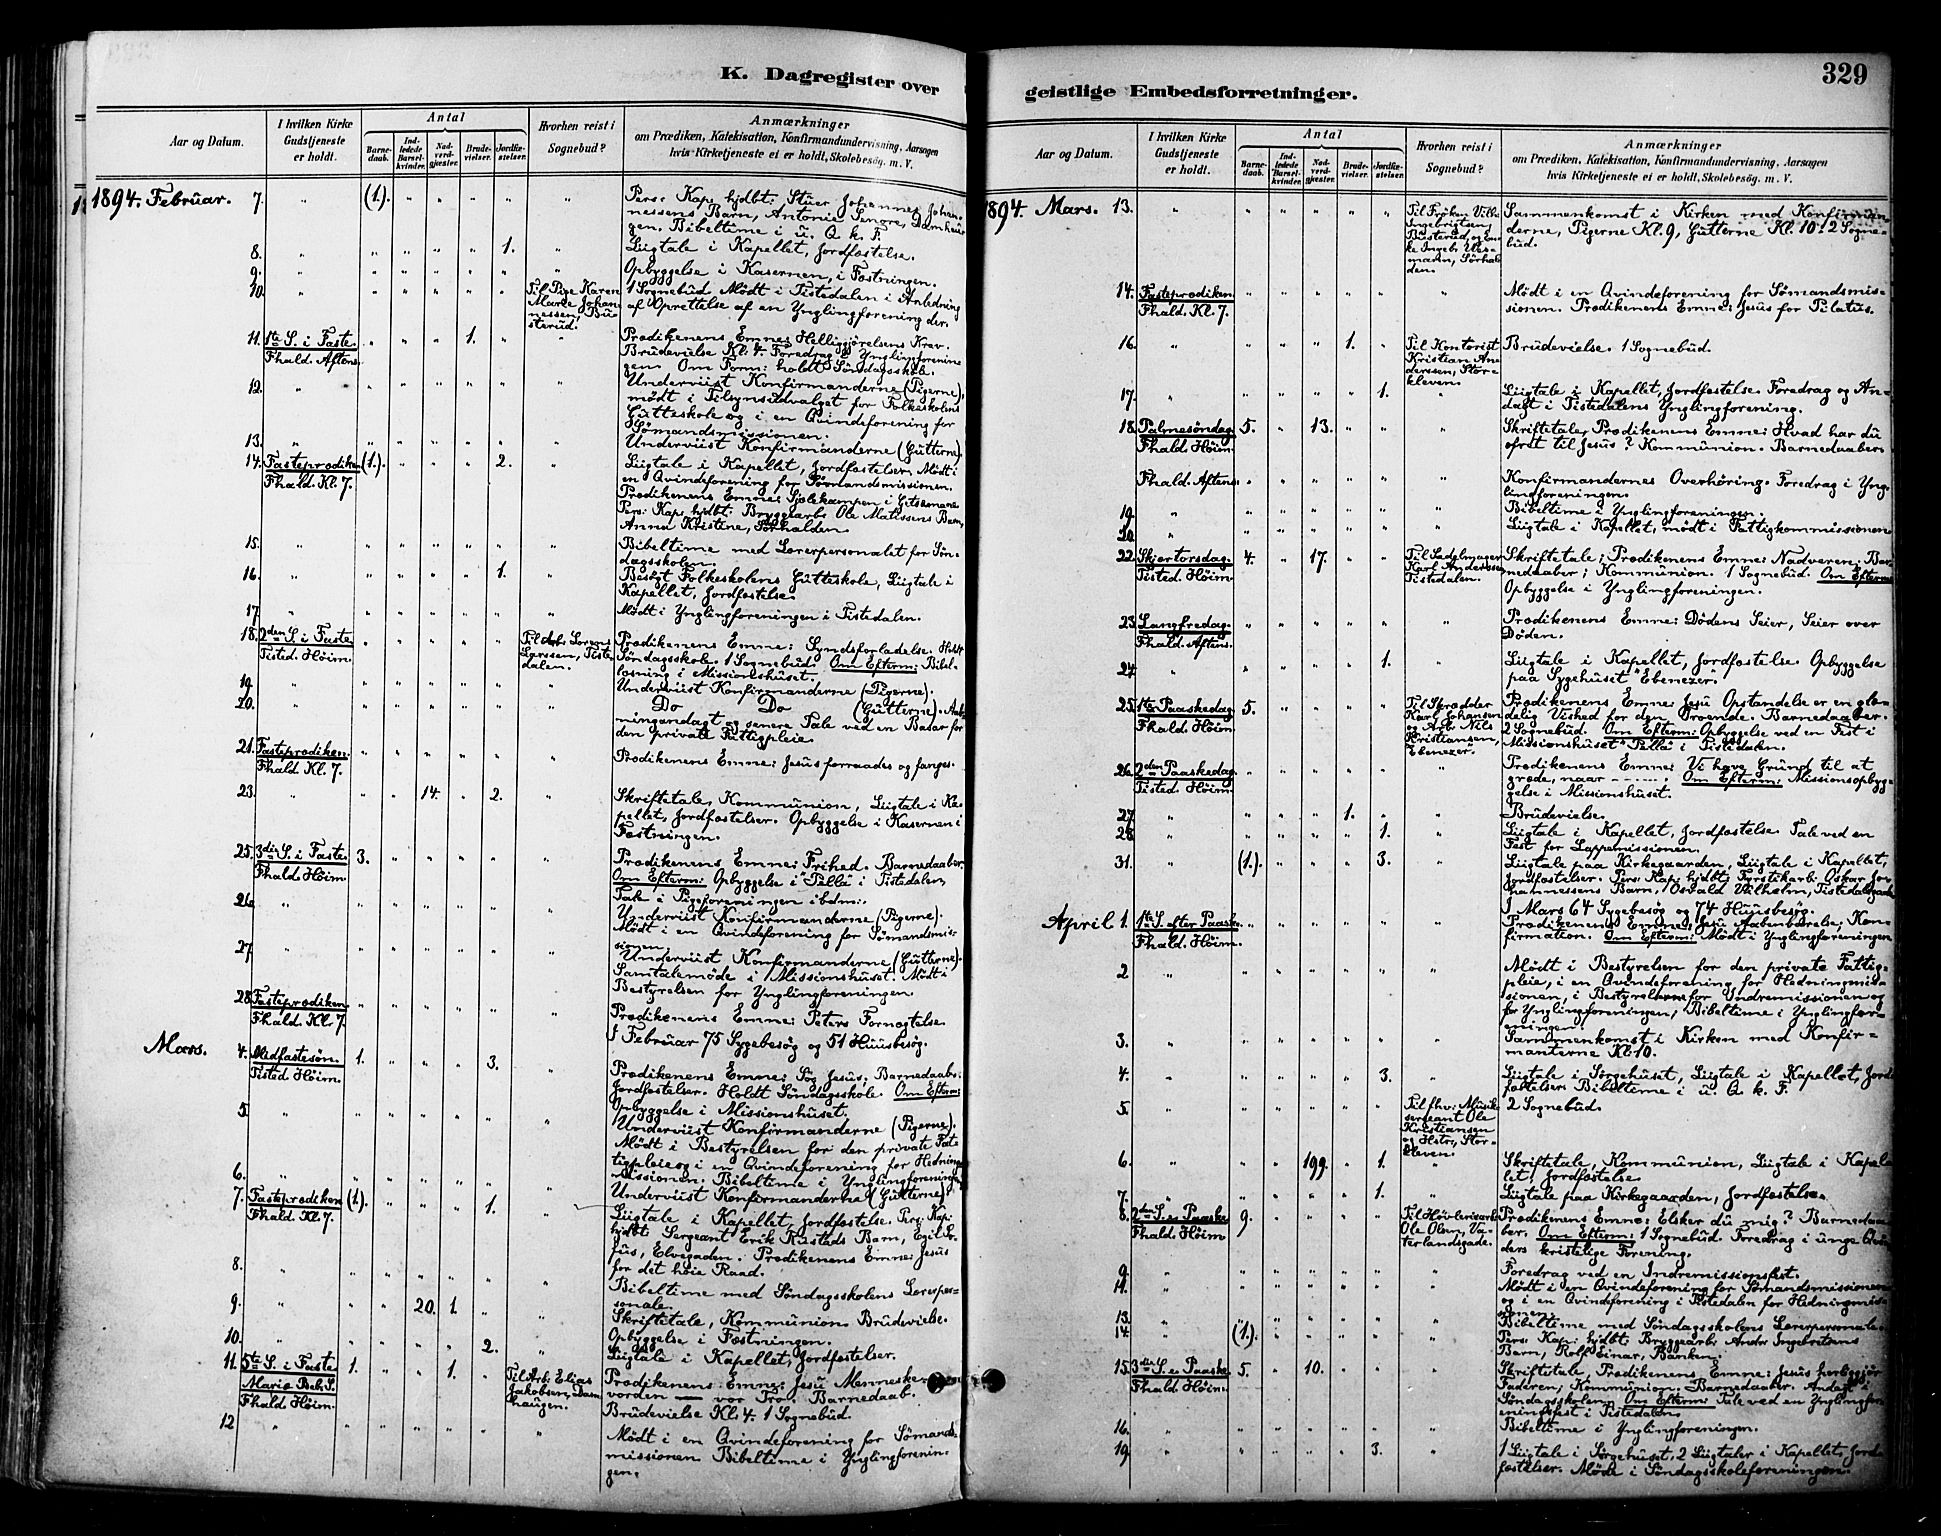 K. Dagregister over
Aar og Datum.
I hvilken Kirke
Gudstjeneste
er holdt.
Antal
Barne-
daab.
Ind-
ledede
Barsel-
kvinder.
Nad-
verd-
gjester.
Brude-
vielser.
Jordfæ-
stelser.
Hvorhen reist i
Sognebud?
Anmærkninger
om Prædiken, Katekisation, Konfirmandundervisning, Aarsagen
hvis Kirketjeneste ei er holdt, Skolebesøg. m. V.
1894. Februar. 7. (1.) Pers: Kap: hjdbt: Stuer Johannes Johan-
nessens Barn, Antonie Lenore, Damhau-
gen. Bibeltime i u. Q. k. F.
8. 1. Liigtale i Kapellet, Jordfæstelse.
9. Opbyggelse i Kasernen, i Fæstningen.
10. Til Pige Karen 1 Sognebud. Mødt i Tistedalen i Anledning
Marie Johan- af Oprettelse af en Ynglingforening der.
nessen, Bu-
sterud.
11. 1te S. i Faste 1. Prædikenens Emne: Helliggjørelsens Krav.
Fhald. Aftens. Brudevielse Kl. 4. Foredrag i Ynglingforenin-
gen. Om Form: holdt Søndagsskole.
12. Underviist Konfirmanderne (Pigerne),
mødt i Tilsynsudvalget for Folkeskolens
Gutteskole og i en Qvindeforening for
Sømandsmissionen.
13. Underviist Konfirmanderne (Gutterne).
14. Fasteprædiken (1.) 2. Liigtale i Kapellet, Jordfæstelser. Mødt i
Fhald. Kl. 7. en Qvindeforening for Sømandsmissionen.
Prædikenens Emne: Sjælekampen i Getsemane
Pers: Kap: hjdbt: Bryggearb: Ole Matissens Barn,
Anna Kristine, Sørhalden.
15. Bibeltime med Lærerpersonalet for Søn-
dagsskolen.
16. 1. Besøgt Folkeskolens Gutteskole, Liigtale i
Kapellet, Jordfæstelse.
17. Mødt i Ynglingforeningen i Tistedalen.
18. 2den S. i Faste Til Arb: Lorens Prædikenens Emne: Syndsforladelse. Holdt
Tisted. Høim. Larssen, Tiste- Søndagsskole. 1 Sognebud. Om Efterm: Bibel-
dalen. læsning i Missionshuset.
19. Underviist Konfirmanderne (Pigerne).
20. Do Do (Gutterne). Aab-
ningandagt og senere Tale ved en Basar for
den private Fattigpleie.
21. Fasteprædiken. Prædikenens Emne: Jesus forraades og fanges.
Fhald Kl. 7.
23. 14. 2. Skriftetale, Kommunion, Liigtale i Ka-
pellet, Jordfæstelser. Opbyggelse i Kasernen i
Fæstningen.
25. 3die S. i Faste. 3. Prædikenens Emne: Frihed. Barnedaaber.
Fhald Høim. Om Efterm: Opbyggelse i "Pella" i Tistedalen,
Tale i Pigeforeningen ibdm:
26. Underviist Konfirmanderne (Pigerne).
Mødt i en Qvindeforening for Sømandsmis-
sionen.
27. Underviist Konfirmanderne (Gutterne).
Samtalemøde i Missionshuset. Mødt i
Bestyrelsen for Ynglingforeningen.
28. Fasteprædiken Prædikenens Emne: Peters Fornægtelse.
Fhald. Kl. 7. I Februar 75 Sygebesøg og 51 Huusbesøg.
Mars. 4. Midfastesøn. 1. 3. Prædikenens Emne: Søg Jesus; Barnedaab.
Tisted. Høim. Jordfæstelser. Holdt Søndagsskole. Om Efterm:
Opbyggelse i Missionshuset.
5. Underviist Konfirmanderne (Pigerne).
Mødt i Bestyrelsen for den private Fat-
tigpleie og i en Qvindeforening for Hednings
Missionen. Bibeltime i Ynglingforeningen
6. Underviist Konfirmanderne (Gutterne).
7. Fasteprædiken (1.) 1. Liigtale i Kapellet, Jordfæstelse. Pers: Kap:
Fhald. Kl. 7. hjdbt: Sergeant Erik Rustads Barn, Egil
Elvegaden. Prædikenens Emne: Jesus
for det høie Raad.
8. Bibeltime med Søndagsskolens Lærerper-
sonale.
9. 20. 1. Skriftetale, Kommunion. Brudevielse.
Opbyggelse i Fæstningen.
10. 2. Liigtale i Kapellet, Jordfæstelser.
11. 5te S. i Faste 1. 1. Til Arb: Elias Prædikenens Emne: Jesu Menneske
Mariæ Beb. S. Jakobsen, Dam- vorden — vor Tro. Barnedaab.
Fhald Høim. haugen. Brudevielse Kl. 4. 1 Sognebud.
12 Mødt i en Qvindeforening for Sømands-
missionen Bibeltime i Ynglingforenin-
gen.
329
geistlige Embedsforretninger.
Aar og Datum.
I hvilken Kirke
Gudstjeneste
er holdt.
Antal
Barne-
daab.
Ind-
ledede
Barsel-
kvinder.
Nad-
verd-
gjester.
Brude-
vielser.
Jordfæ-
stelser.
Hvorhen reist i
Sognebud?
Anmærkninger
om Prædiken, Katekisation, Konfirmandundervisning, Aarsagen
hvis Kirketjeneste ei er holdt, Skolebesøg. m. V.
1894. Mars. 13. Til Frøken Villa Sammenkomst i Kirken med Konfirman-
Ingebrigtsen, derne, Pigerne Kl. 9, Gutterne Kl. 10. 2 Sogne-
Busterud, og En- bud.
ke Ingeb: Wes-
mann, Sørhal-
den.
14. Fasteprædiken Mødt i en Qvindeforening for Sømandsmis-
Fhald. Kl. 7. sionen. Prædikenens Emne: Jesus for Pilatus.
16. 1. Til Kontorist Brudevielse. 1 Sognebud.
Kristian An-
derssen, Stor-
kleven.
17. 1. Liigtale i Kapellet, Jordfæstelse. Foredrag og An-
dagt i Tistedalens Ynglingforening.
18. Palmesøndag 5. 13. Skriftetale, Prædikenens Emne: Hvad har du
Fhald Høim. ofret til Jesus? Kommunion. Barnedaaber.
Fhald. Aftens. Konfirmandernes Overhøring. Foredrag i Yng-
lingforeningen.
19. Bibeltime i Ynglingforeningen.
20. Liigtale i Kapellet, mødt i Fattigkommissionen
22. Skjærtorsdag. 4. 17. Til Sadelmager Skriftetale; Prædikenens Emne: Nadveren; Bar-
Tisted. Høim. Karl Anderssen nedaaber; Kommunion. 1 Sognebud. Om Efterm:
Tistedalen. Opbyggelse i Ynglingforeningen.
23. Langfredag. Prædikenens Emne: Dødens Seier, Seier over
Fhald. Aftens. Døden.
24. 1. Liigtale i Kapellet, Jordfæstelse. Opbyggelse
paa Sygehuset "Ebenezer".
25. 1te Paaskedag 5. Til Skrædder Prædikenens Emne: Jesu Opstandelse er en glæ-
Fhald Høim. Karl Johansen delig Vished for den Troende. Barnedaaber.
og Arb: Nils 2 Sognebud. Om Efterm: Opbyggelse ved en Fest i
Kristiansen, Missionshuset "Pella" i Tistedalen.
"Ebenezer".
26. 2den Paaskedag. Prædikenens Emne: Vi have Grund til at
Tisted. Høim. græde, naar - - - - -. Om Efterm: Missionsopbyg-
gelse i Missionshuset.
27. 1. Brudevielse.
28. 1. Liigtale i Kapellet, Jordfæstelse. Tale ved en
Fest for Lappemissionen.
31. (1.) 3. Liigtale paa Kirkegaarden, Liigtale i Kapellet,
Jordfæstelser. Pers: Kap: hjdbt: Fyrstikarb: Oskar Jo-
hannessens Barn, Osvald Vilhelm, Tistedalsgade
I Mars 64 Sygebesøg og 74 Huusbesøg.
April 1. 1te S. efter Paaske. Prædikenens Emne: Jesu Aabenbarelse, Kon-
Fhald. Høim. firmation. Om Efterm: Mødt i Ynglingforeningen
2 Mødt i Bestyrelsen for den private Fattig-
pleie, i en Qvindeforening for Hedningmis-
sionen, i Bestyrelserne for Indremissionen og
for Ynglingforeningen; Bibeltime i Ynglingfor-
eningen.
3. Sammenkomst i Kirken med Konfir-
manterne Kl. 10.
4. 3. Liigtale i Sørgehuset, Liigtale i Kapellet, Jord-
fæstelser. Bibeltime i u. Q. k. F.
5. Til fhv: Musik- 2 Sognebud.
sergeant Ole
Kristiansen
og Hstr:, Stor-
kleven.
6. 199. 1. Skriftetale, Kommunion, Liigtale i Kapel-
let, Jordfæstelse.
7. 1. Liigtale paa Kirkegaarden, Jordfæstelse.
8. 2den S. e. Paaske 9. Til Høvleriarb: Prædikenens Emne: Elsker du mig? Barnedaa-
Fhald Høim Ole Olsen, Va- ber. Om Efterm: 1 Sognebud. Foredrag i unge Qvin-
terlandsgade. ders kristelige Forening.
9. Foredrag ved en Indremissionsfest.
11. Mødt i en Qvindeforening for Sømandsmissionen
og i en Qvindeforening i Tistedalen for Hedningmis-
sionen.
13. Bibeltime med Søndagsskolens Lærerpersonale.
14. (1.) Pers: Kap: hjdbt: Bryggearb: Andr: Ingebretsens
Barn, Rolf Einar, Banken.
15. 3die S. e. Paaske 5. 10. Skriftetale, Prædikenens Emne: Jesus herliggjør
Fhald Høim. Faderen, Kommunion. Barnedaaber. Andagt i
Søndagsskolen. Om Efterm: Tale ved en Ynglingfor-
eningsfest i Tistedalen.
16. Bibeltime i Ynglingforeningen.
19. 3. 1 Liigtale i Sørgehuset, 2 Liigtaler i Kapellet, Jord-
fæstelser. Møde i Søndagsskoleforeningen.